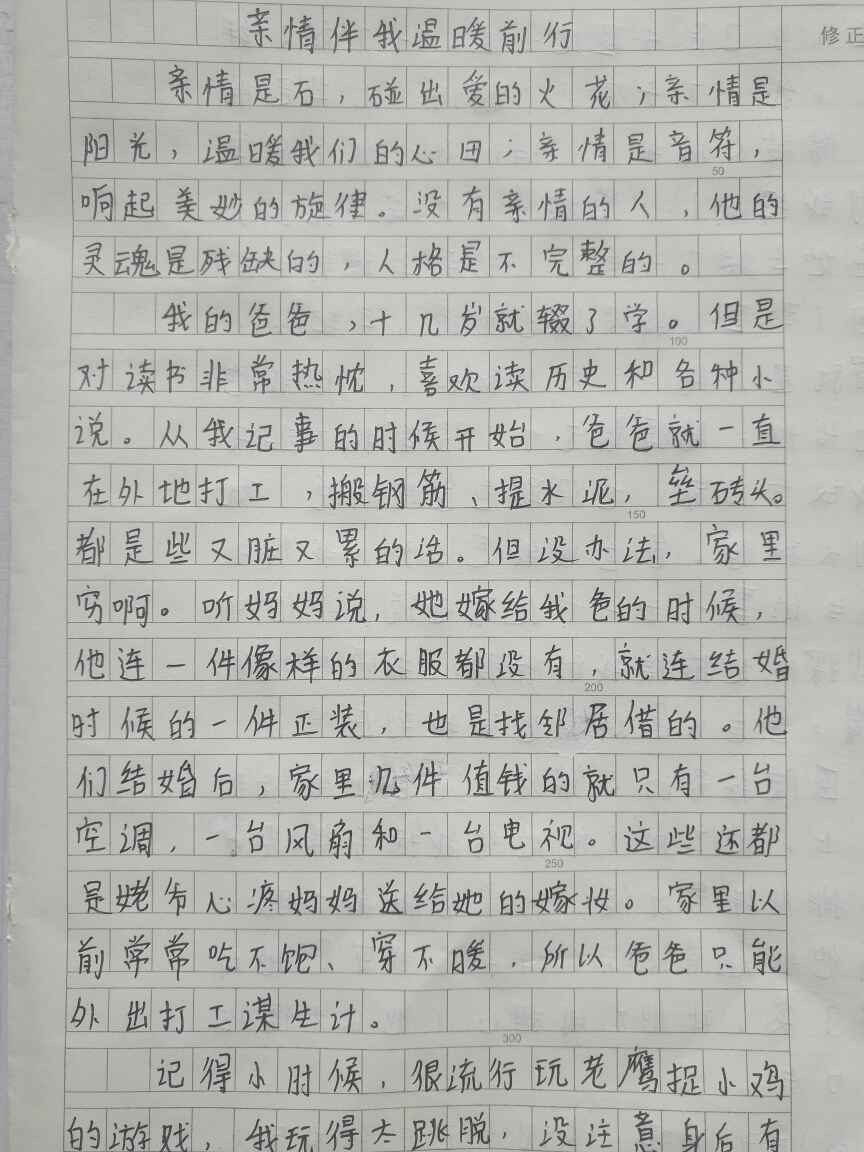 亲情伴我温暖前行
修正
亲情是石，碰出爱的火花；亲情是
阳光，温暖我们的心田；亲情是音符，
50
响起美妙的旋律。没有亲情的人，他的
灵魂是残缺的，人格是不完整的。
我的爸爸，十几岁就辍了学。但是
100
对读书非常热忱，喜欢读历史和各种小
说。从我记事的时候开始，爸爸就一直
在外地打工，搬钢筋、提水泥，垒砖头。
150
都是些又脏又累的活。但没办法，家里
穷啊。听妈妈说，她嫁给我爸的时候，
他连一件像样的衣服都没有，就连结婚
200
时候的一件正装，也是找邻居借的。他
们结婚后，家里几件值钱的就只有一台
空调，一台风扇和一台电视。这些还都
250
是姥爷心疼妈妈送给她的嫁妆。家里以
前常常吃不饱、穿不暖，所以爸爸只能
外出打工谋生计。
300
记得小时候，很流行玩老鹰捉小鸡
的游戏，我玩得太跳脱，没注意身后有